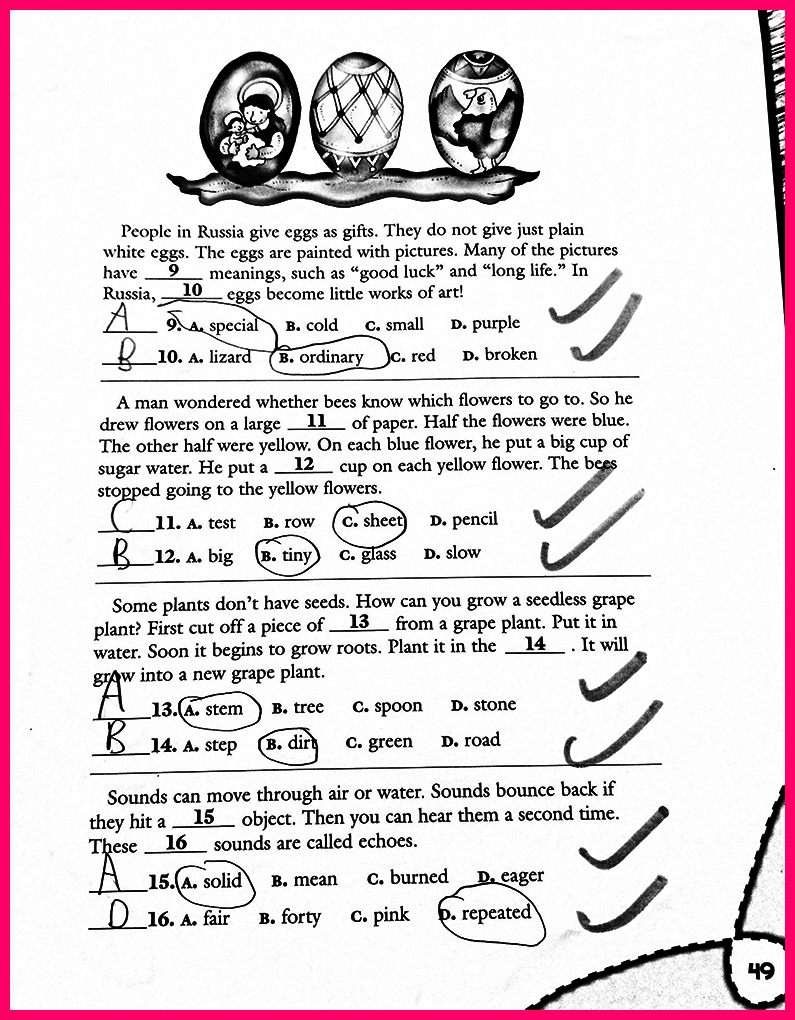 People in Russia give eggs as gifts. They do not give just plain
white eggs. The eggs are painted with pictures. Many of the pictures
have 9 meanings, such as “good luck” and “long life.” In
Russia, 10 eggs become little works of art!
A 9. A. special B. cold C. small D. purple
B 10. A. lizard B. ordinary C. red D. broken
A man wondered whether bees know which flowers to go to. So he
drew flowers on a large 11 of paper. Half the flowers were blue.
The other half were yellow. On each blue flower, he put a big cup of
sugar water. He put a 12 cup on each yellow flower. The bees
stopped going to the yellow flowers.
C 11. A. test B. row C. sheet D. pencil
B 12. A. big B. tiny C. glass D. slow
Some plants don’t have seeds. How can you grow a seedless grape
plant? First cut off a piece of 13 from a grape plant. Put it in
water. Soon it begins to grow roots. Plant it in the 14 . It will
grow into a new grape plant.
A 13. A. stem B. tree C. spoon D. stone
B 14. A. step B. dirt C. green D. road
Sounds can move through air or water. Sounds bounce back if
they hit a 15 object. Then you can hear them a second time.
These 16 sounds are called echoes.
A 15. A. solid B. mean C. burned D. eager
D 16. A. fair B. forty C. pink D. repeated
49